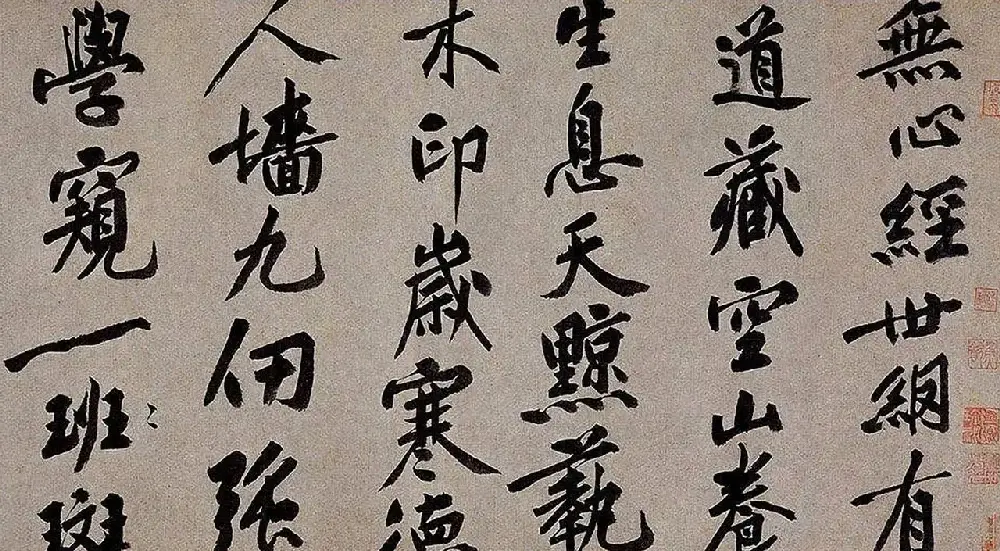 無心經世網有
道藏空山養
生息天黥藝
木印歲寒德
人墻九仞強
學窺一班斑